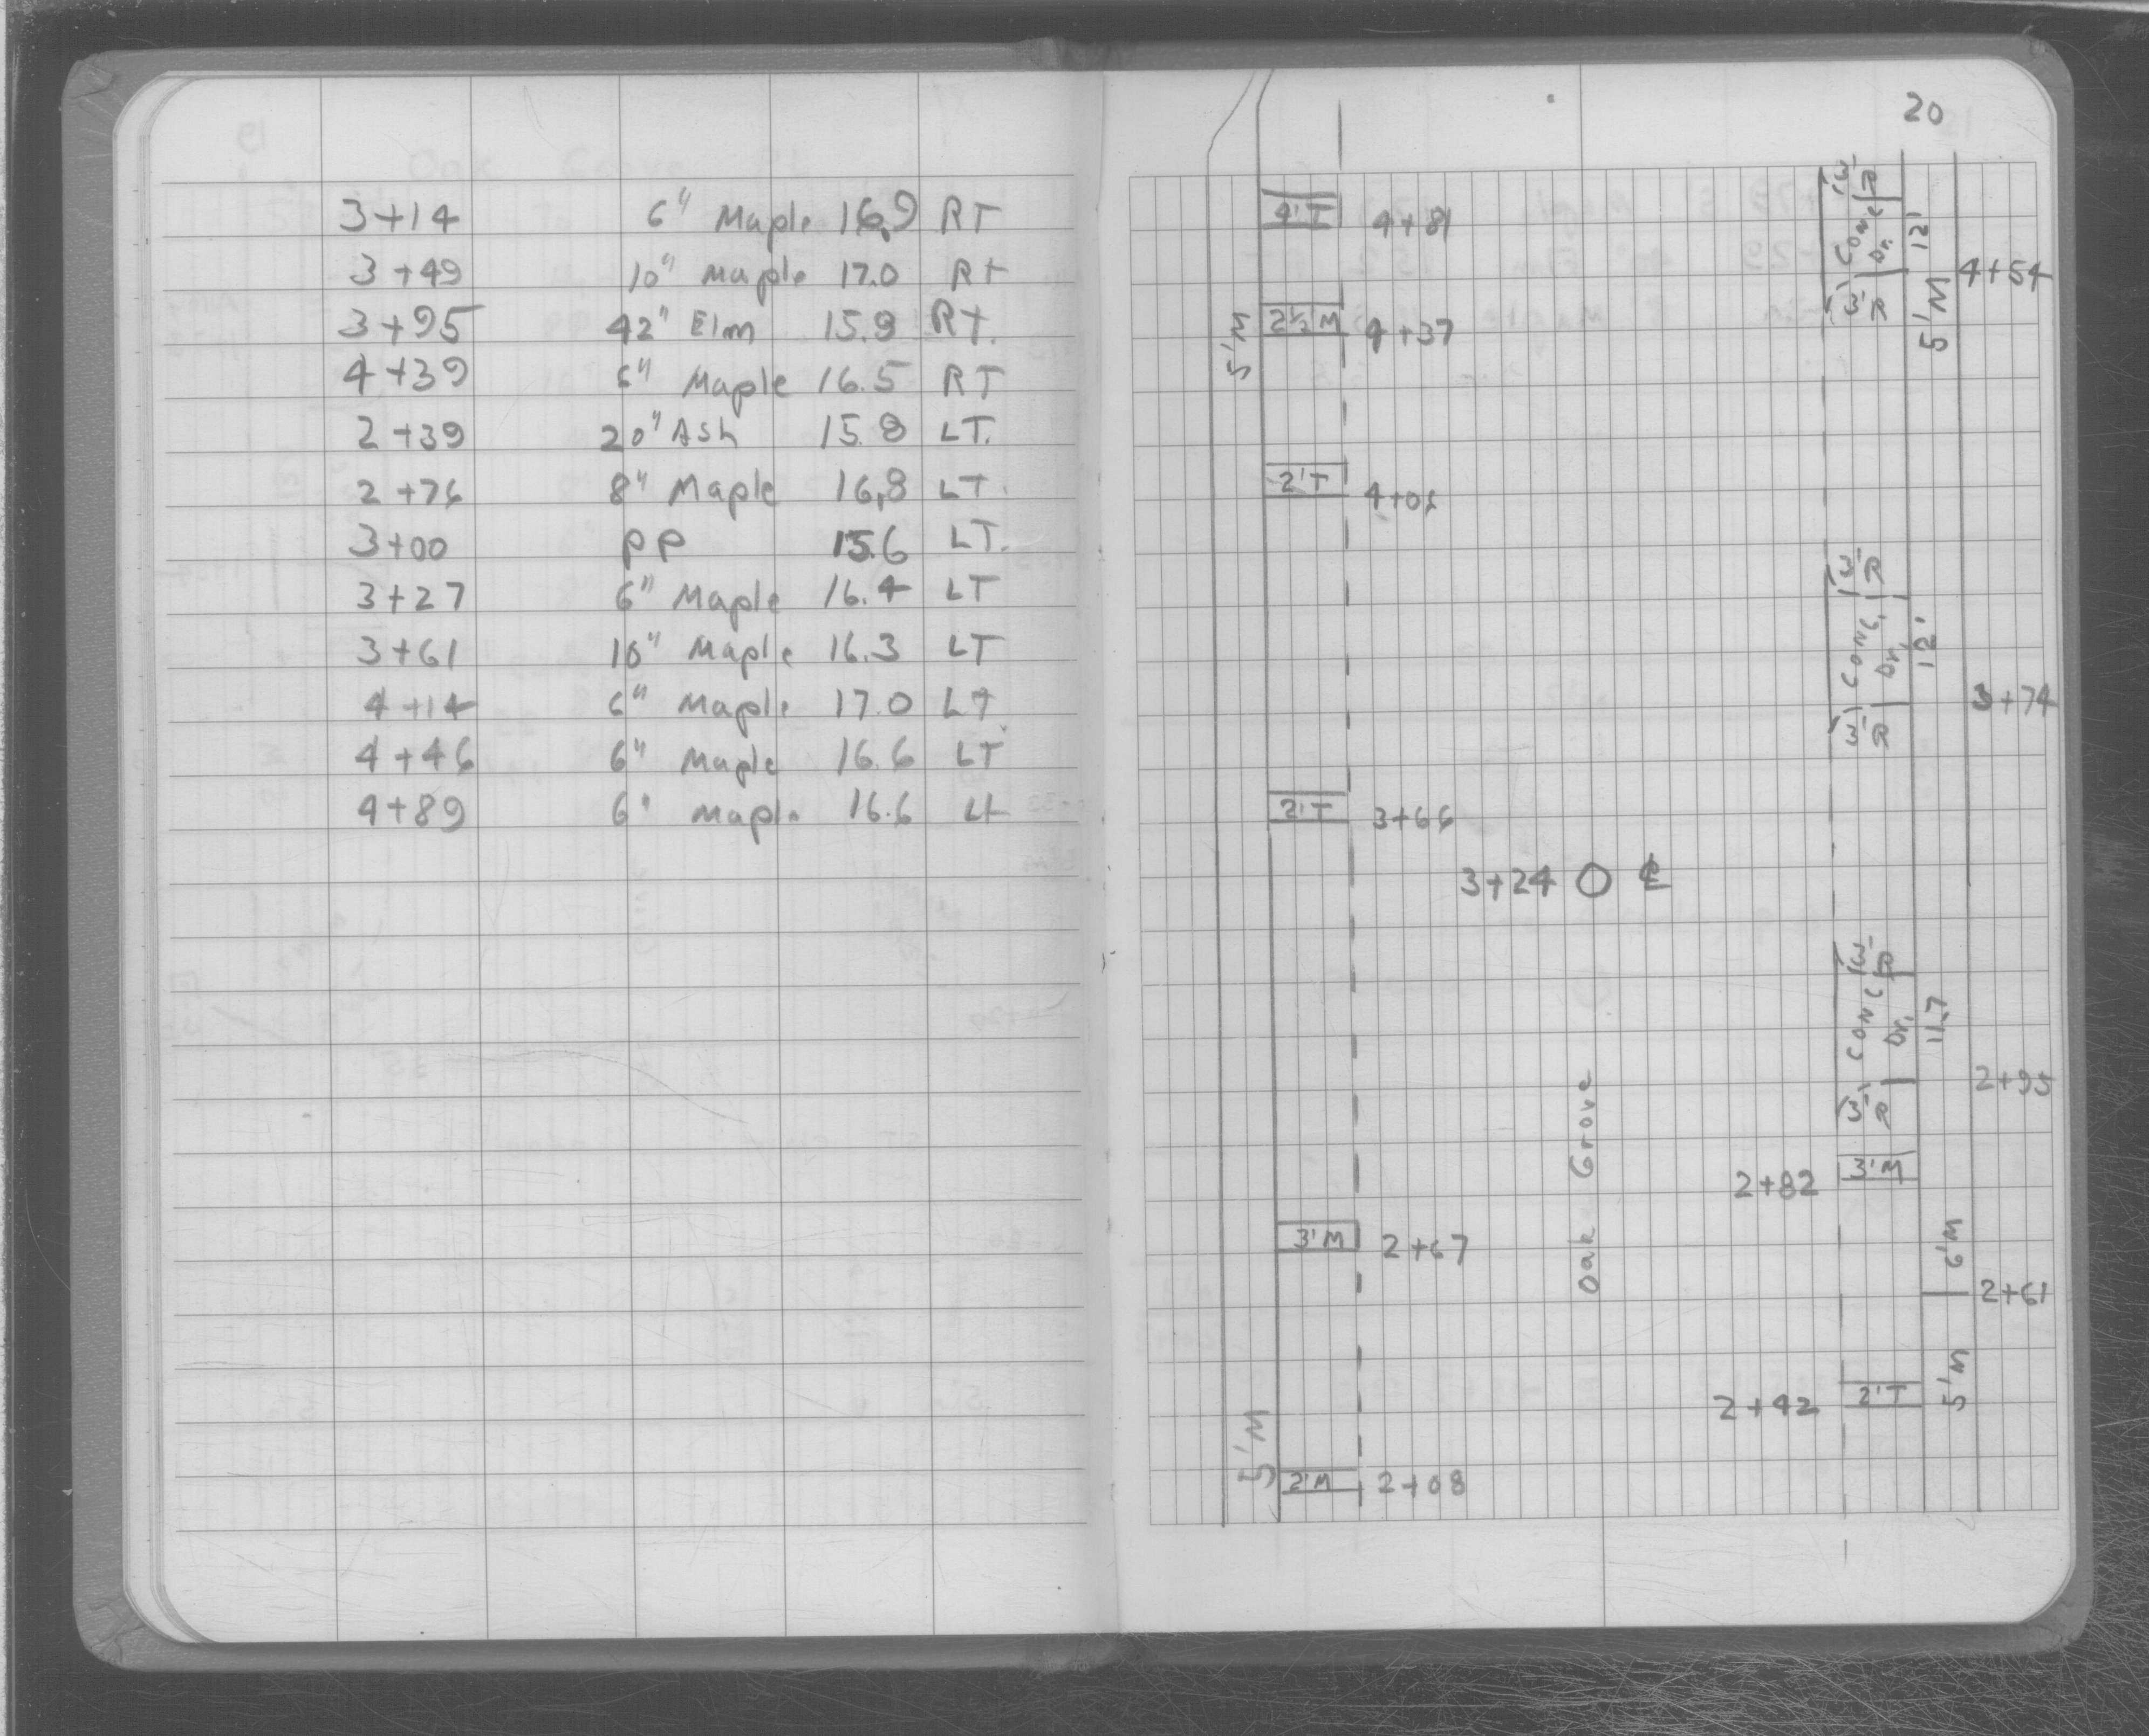 3+14 6" Maple 16.9 RT
3+49 10" Maple 17.0 Rt
3+95 42" Elm 15.8 RT.
4+39 6" Maple 16.5 RT
2+39 20" Ash 15.8 LT.
2+76 8" Maple 16.8 LT.
3+00 PP 15.6 LT.
3+27 6" Maple 16.4 LT
3+61 10" Maple 16.3 LT
4+14 6" Maple 17.0 LT
4+46 6" Maple 16.6 LT
4+89 6" Maple 16.6 Lt
20
4'T 4+81
3'R
Conc Dr. 12'
3'R
4+54
5'M
5'M
2½ M 4+37
2'T
3'R
Conc. Dr. 12'
3'R
3+74
2'T 3+66
3+24 O ℄
3'R
Conc Dr. 11.7
3'R
2+95
Oak Grove
2+82 3'M
3'M 2+67
6'M
2+61
2+42 2'T
5'M
5'M
2'M 2+08